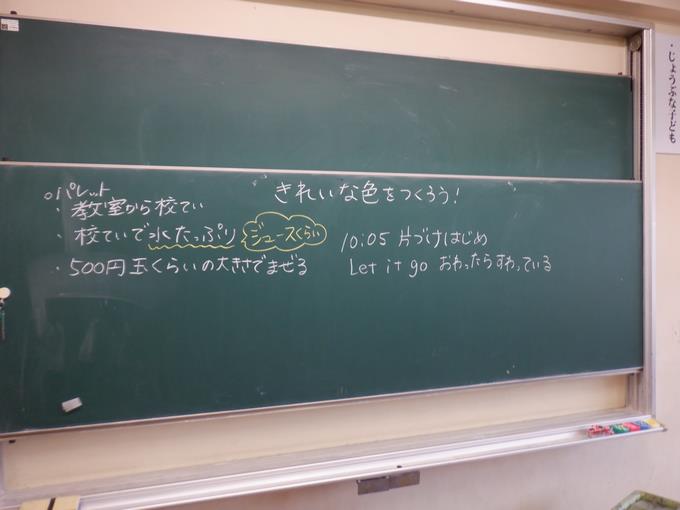 きれいな色をつくろう!
○パレット
・教室から校てい
・校ていで水たっぷり ジュースくらい
・500円玉くらいの大きさでまぜる
10:05 片づけはじめ
Let it go おわったらすわっている
・じょうぶな子ども